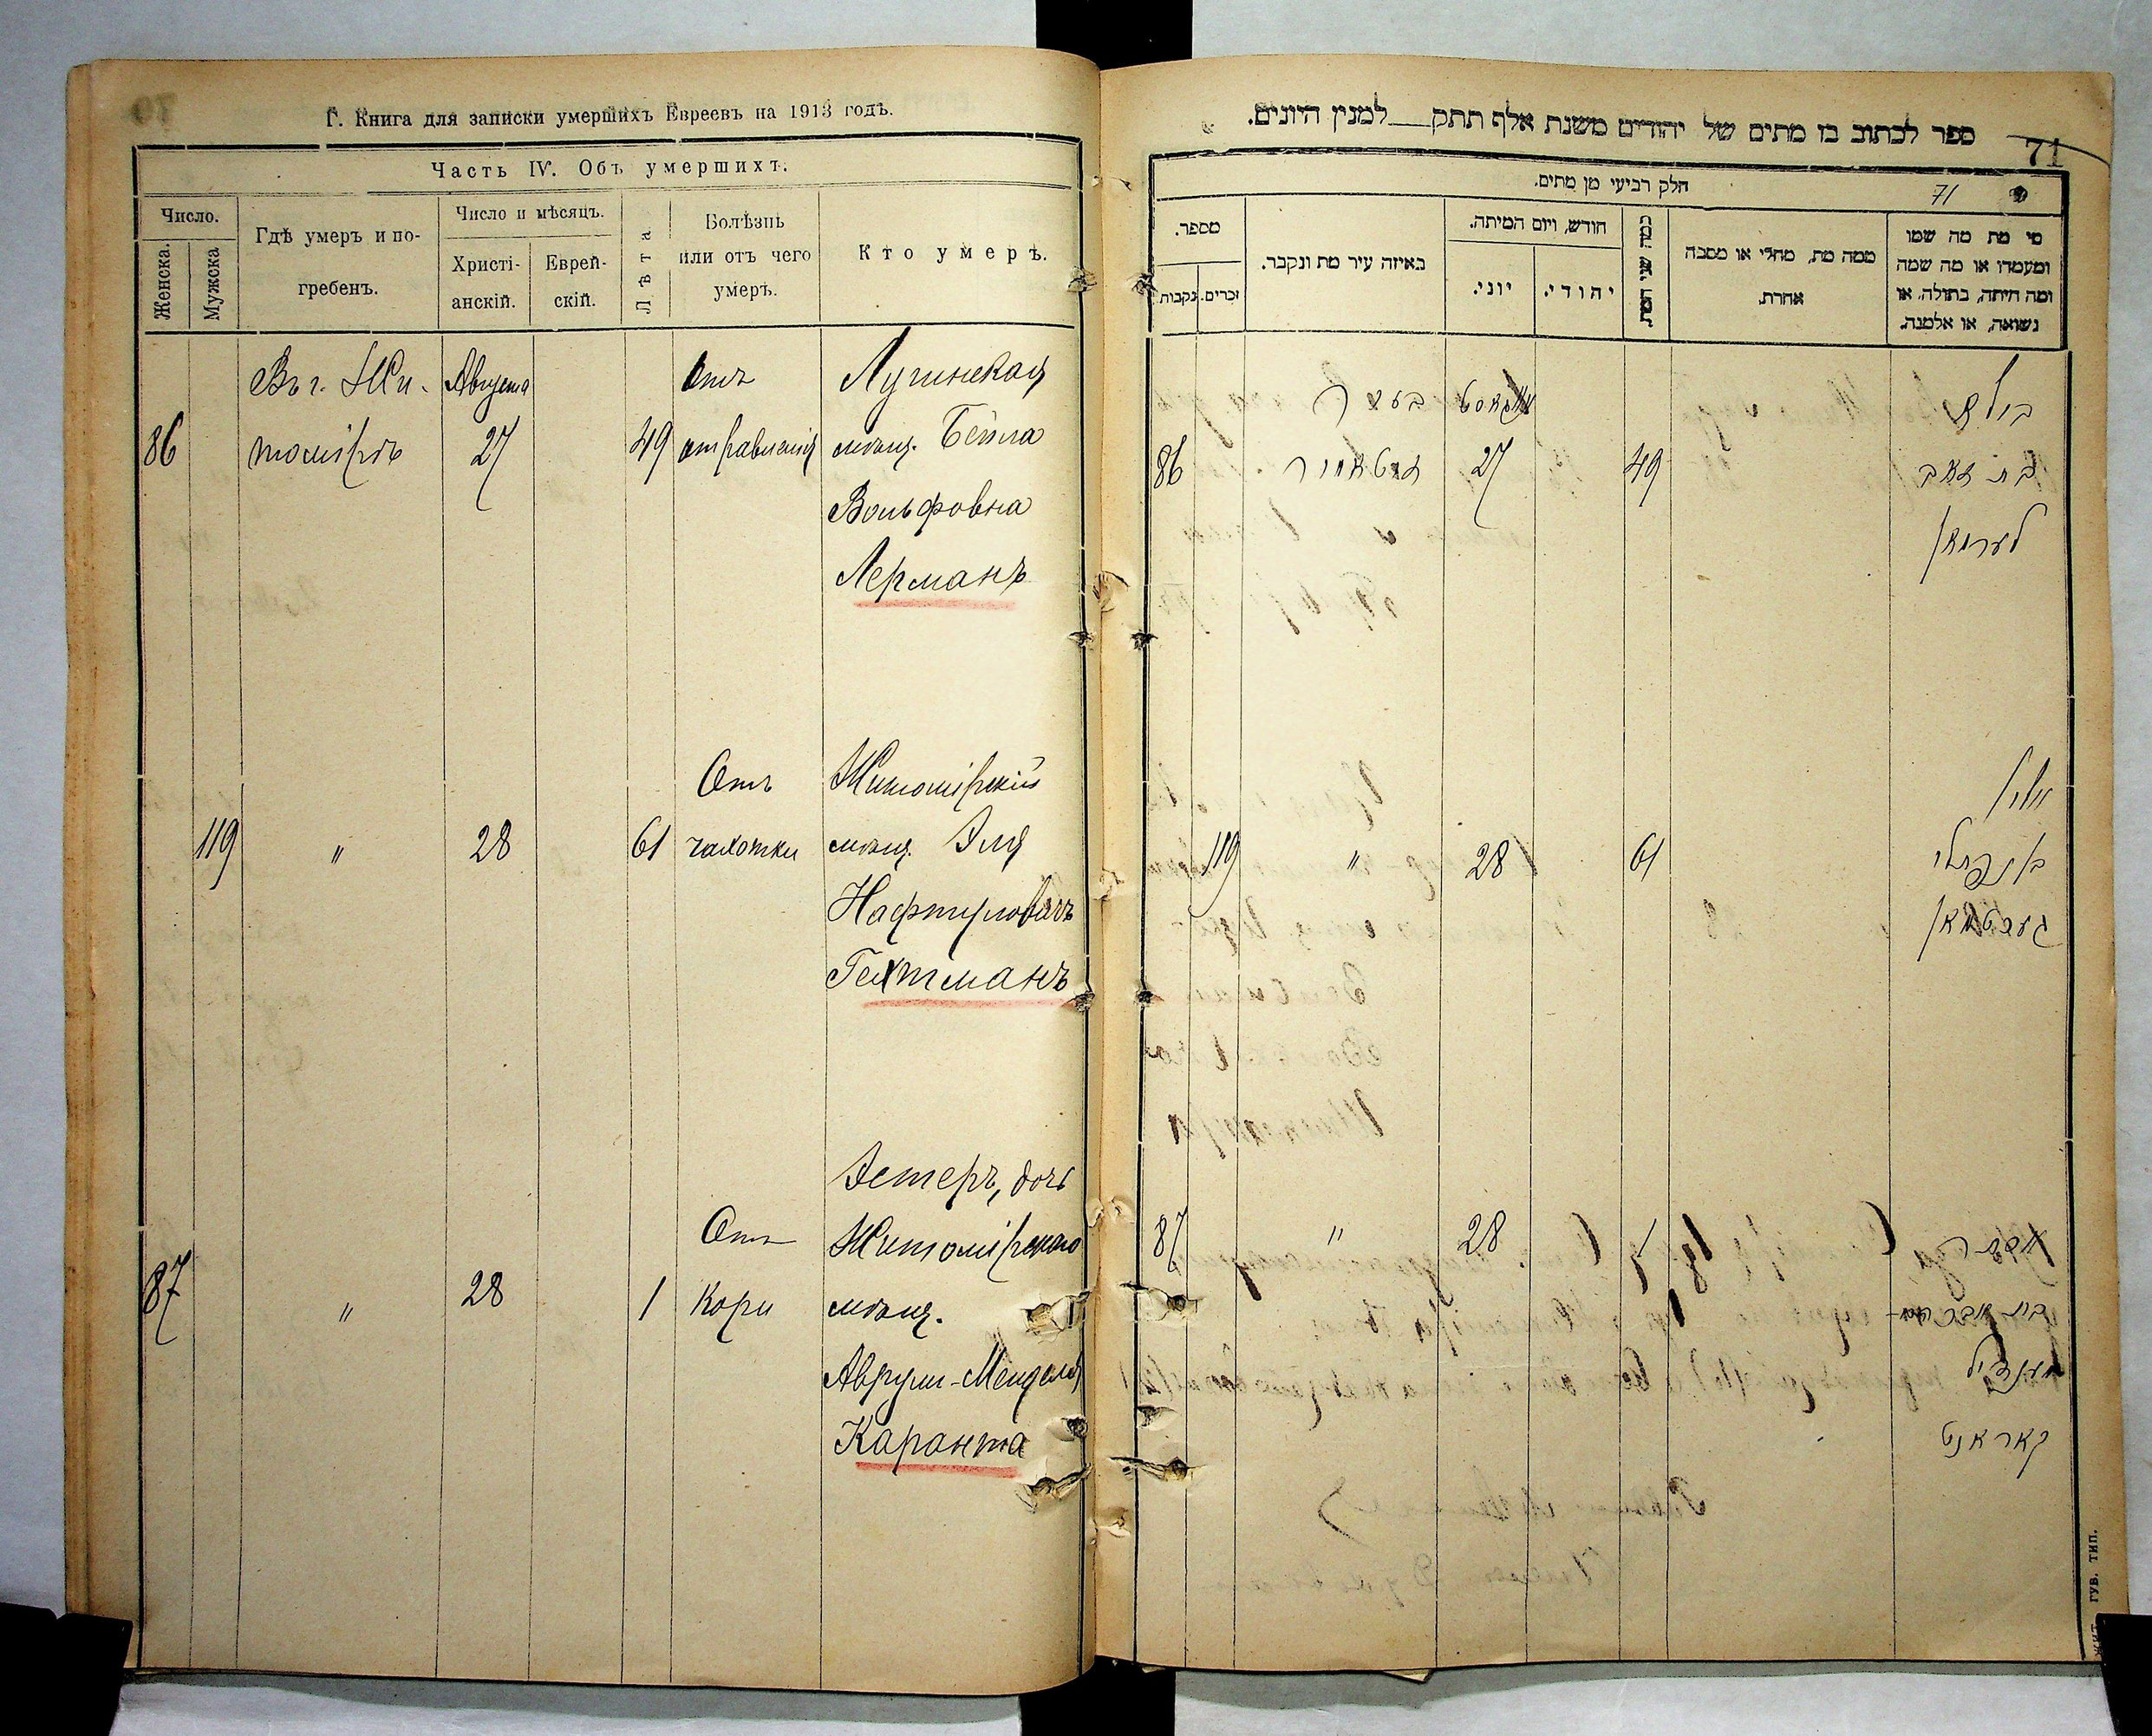 Г. Книга для записки умершихъ Евреевъ на 1913 годъ.
Часть IV. Объ умершихъ.
Число.
Женска.
Мужска
Гдѣ умеръ и по-
гребенъ.
Число и мѣсяцъ.
Христі-
анскій.
Еврей-
скій.
Лѣта
Болѣзнь
или отъ чего
умеръ.
Кто умеръ.
Въ г. Жи- Августа Отъ Лугинская
86 томірѣ 27 49 отравленія мѣщ. Бейла
Вольфовна
Лерманъ
Отъ Житомірскій
119 " 28 61 чахотки мѣщ. Эля
Нафтуловичъ
Гехтманъ
Эстеръ, дочь
Отъ Житомірскаго
87 " 28 1 Кори мѣщ.
Аврум-Мендель
Каранта
ספר לכתוב בו מתים של יהודים משנת אלף תתק למנין היונים.
71
חלק רביעי מן מתים.
71
מספר.
זכרים.
נקבות
באיזה עיר מת ונקבר.
חודש, ויום המיתה.
יוני.
יהודי.
כמה שני המת.
ממה מת, מחלי או מסבה
אחרת.
מי מת מה שמו
ומעמדו או מה שמה
ומה היתה, בתולה, או
נשואה, או אלמנה.
בעיר אוגוסט ביילא
86 זיטאמיר 27 49 בת זאב
לערמאן
אליי
119 " 28 61 בן נפתלי
געכטמאן
87 " 28 1 אסתר
בת אברהם-
מענדיל
קאראנט
ЖИТ. ГУБ. ТИП.